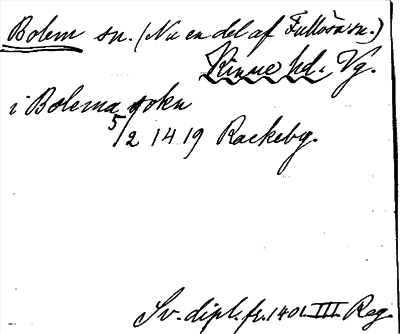 Bolem sn. (Nu en del af Fullösa sn.)
Kinne hd. Vg.
i Bolema sokn
5/2 1419 Rackeby.
Sv. dipl. fr. 1401 III Reg.